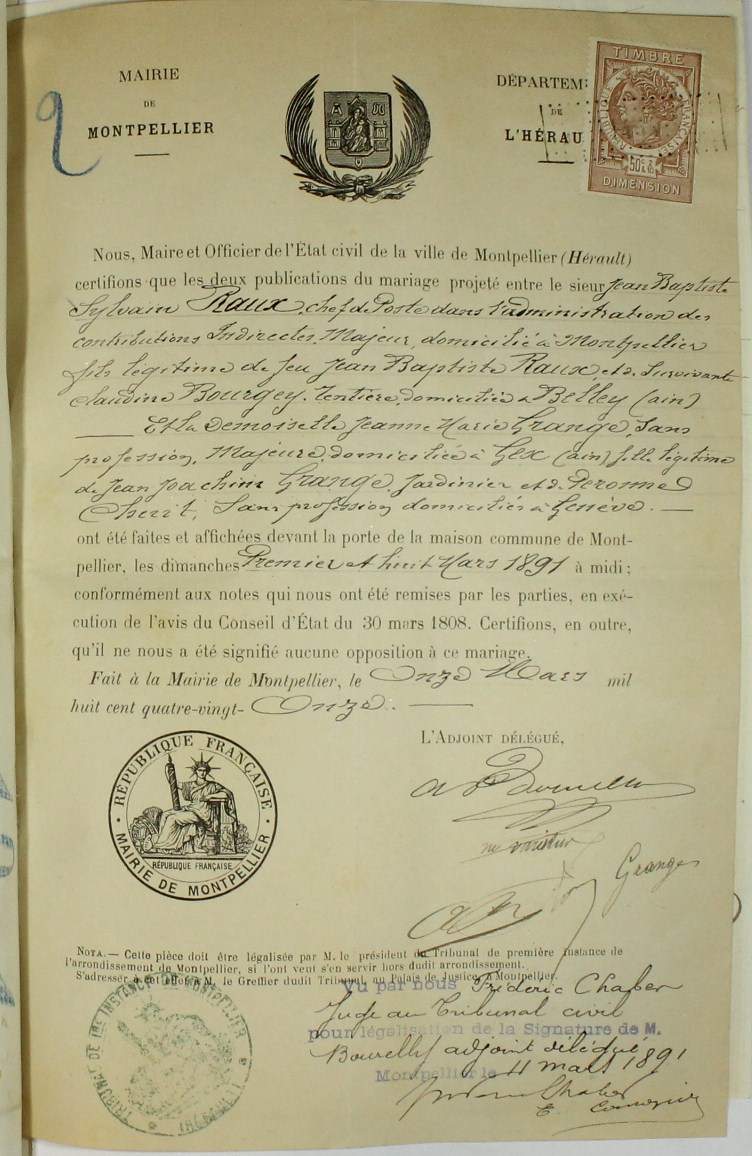 2
MAIRIE
DE
MONTPELLIER
DÉPARTEM
DE
L'HÉRAU
TIMBRE
RÉPUBLIQUE FRANÇAISE
50c.
DIMENSION
Nous, Maire et Officier de l'État civil de la ville de Montpellier (Hérault)
certifions que les deux publications du mariage projeté entre le sieur Jean Baptiste
Sylvain Raux, chef de Poste dans l'administration des
contributions Indirectes, Majeur, domicilié à Montpellier
fils légitime de feu Jean Baptiste Raux et de survivante
Claudine Bourgey, rentière, domiciliée à Belley (ain)
Et la Demoiselle Jeanne Marie Grange, sans
profession, Majeure, domiciliée à Gex (ain) fille légitime
de Jean Joachim Grange, Jardinier et de Peronne
sans profession domiciliés à Genève. —
ont été faites et affichées devant la porte de la maison commune de Mont-
pellier, les dimanches Premier et huit Mars 1891 à midi ;
conformément aux notes qui nous ont été remises par les parties, en exé-
cution de l'avis du Conseil d'État du 30 mars 1808. Certifions, en outre,
qu'il ne nous a été signifié aucune opposition à ce mariage.
Fait à la Mairie de Montpellier, le Onze Mars mil
huit cent quatre-vingt- Onze. —
L'ADJOINT DÉLÉGUÉ,
RÉPUBLIQUE FRANÇAISE
RÉPUBLIQUE FRANÇAISE
MAIRIE DE MONTPELLIER
ne varietur
Grange
NOTA. — Cette pièce doit être légalisée par M. le président du Tribunal de première instance de
l'arrondissement de Montpellier, si l'ont veut s'en servir hors dudit arrondissement.
S'adresser à cet effet à M. le Greffier dudit Tribunal au Palais de Justice, à Montpellier.
Vu par nous Frédéric Chaber
Juge au Tribunal civil
pour légalisation de la Signature de M.
Bourelly adjoint délégué
Montpellier le 11 mars 1891
TRIBUNAL DE 1RE INSTANCE DE MONTPELLIER
(HÉRAULT)